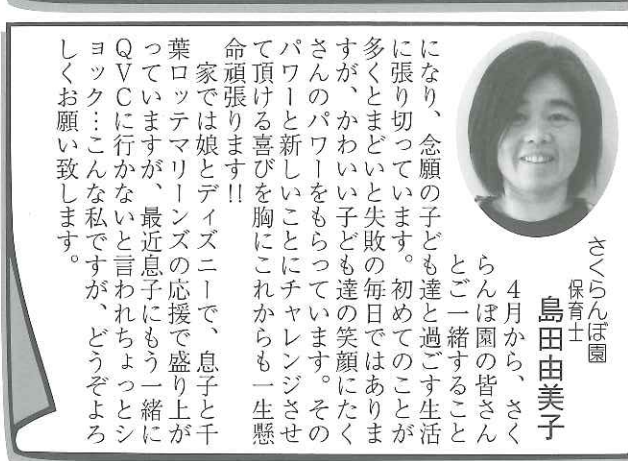 さくらんぼ園
保育士
島田由美子
４月から、さく
らんぼ園の皆さん
とご一緒すること
になり、念願の子ども達と過ごす生活
に張り切っています。初めてのことが
多くとまどいと失敗の毎日ではありま
すが、かわいい子ども達の笑顔にたく
さんのパワーをもらっています。その
パワーと新しいことにチャレンジさせ
て頂ける喜びを胸にこれからも一生懸
命頑張ります!!
家では娘とディズニーで、息子と千
葉ロッテマリーンズの応援で盛り上が
っていますが、最近息子にもう一緒に
QVCに行かないと言われちょっとシ
ョック…こんな私ですが、どうぞよろ
しくお願い致します。